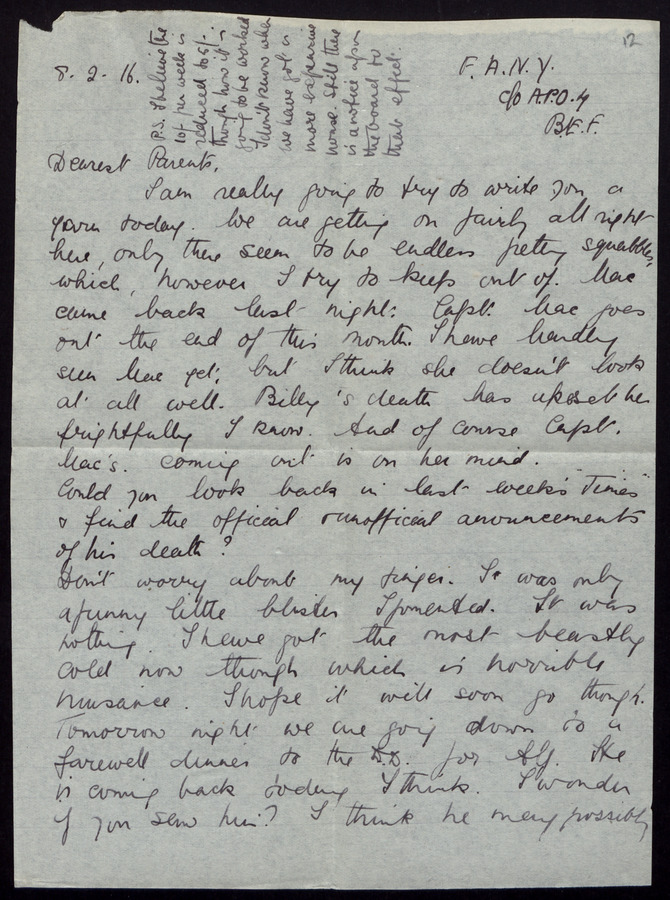 12
8.2.16.
F.A.N.Y.
c/o A.P.O.4
B.E.F.
P.S. I believe the
10/- per week is
reduced to 5/-.
though how it is
going to be worked
I don't know when
we have got a
more expensive
house. Still there
is a notice upon
the board to
that effect.
Dearest Parents,
I am really going to try to write you a
yarn today. We are getting on fairly all right
here, only there seem to be endless petty squabbles,
which, however I try to keep out of. Mac
came back last night. Capt. Mac goes
out the end of this month. I have hardly
seen Mac yet, but I think she doesn't look
at all well. Billy's death has upset her
frightfully I know. And of course Capt.
Mac's. coming out is on her mind.
Could you look back in last week's "Times"
& find the official & unofficial announcements
of his death?
Don't worry about my finger. It was only
a funny little blister I fomented. It was
nothing. I have got the most beastly
cold now though which is horrible
nuisance. I hope it will soon go though.
Tomorrow night we are going down to a
farewell dinner to the for Alf. He
is coming back today I think. I wonder
if you saw him? I think he may possibly